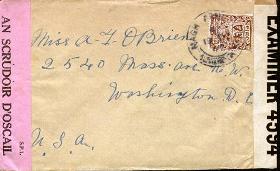 AN SCRÚDÓIR D'OSCAIL
S.P.I.
Miss A-F-O'Brien
2540 Mass. ave N.W.
Washington D.C
U.S.A.
EXAMINER 4534